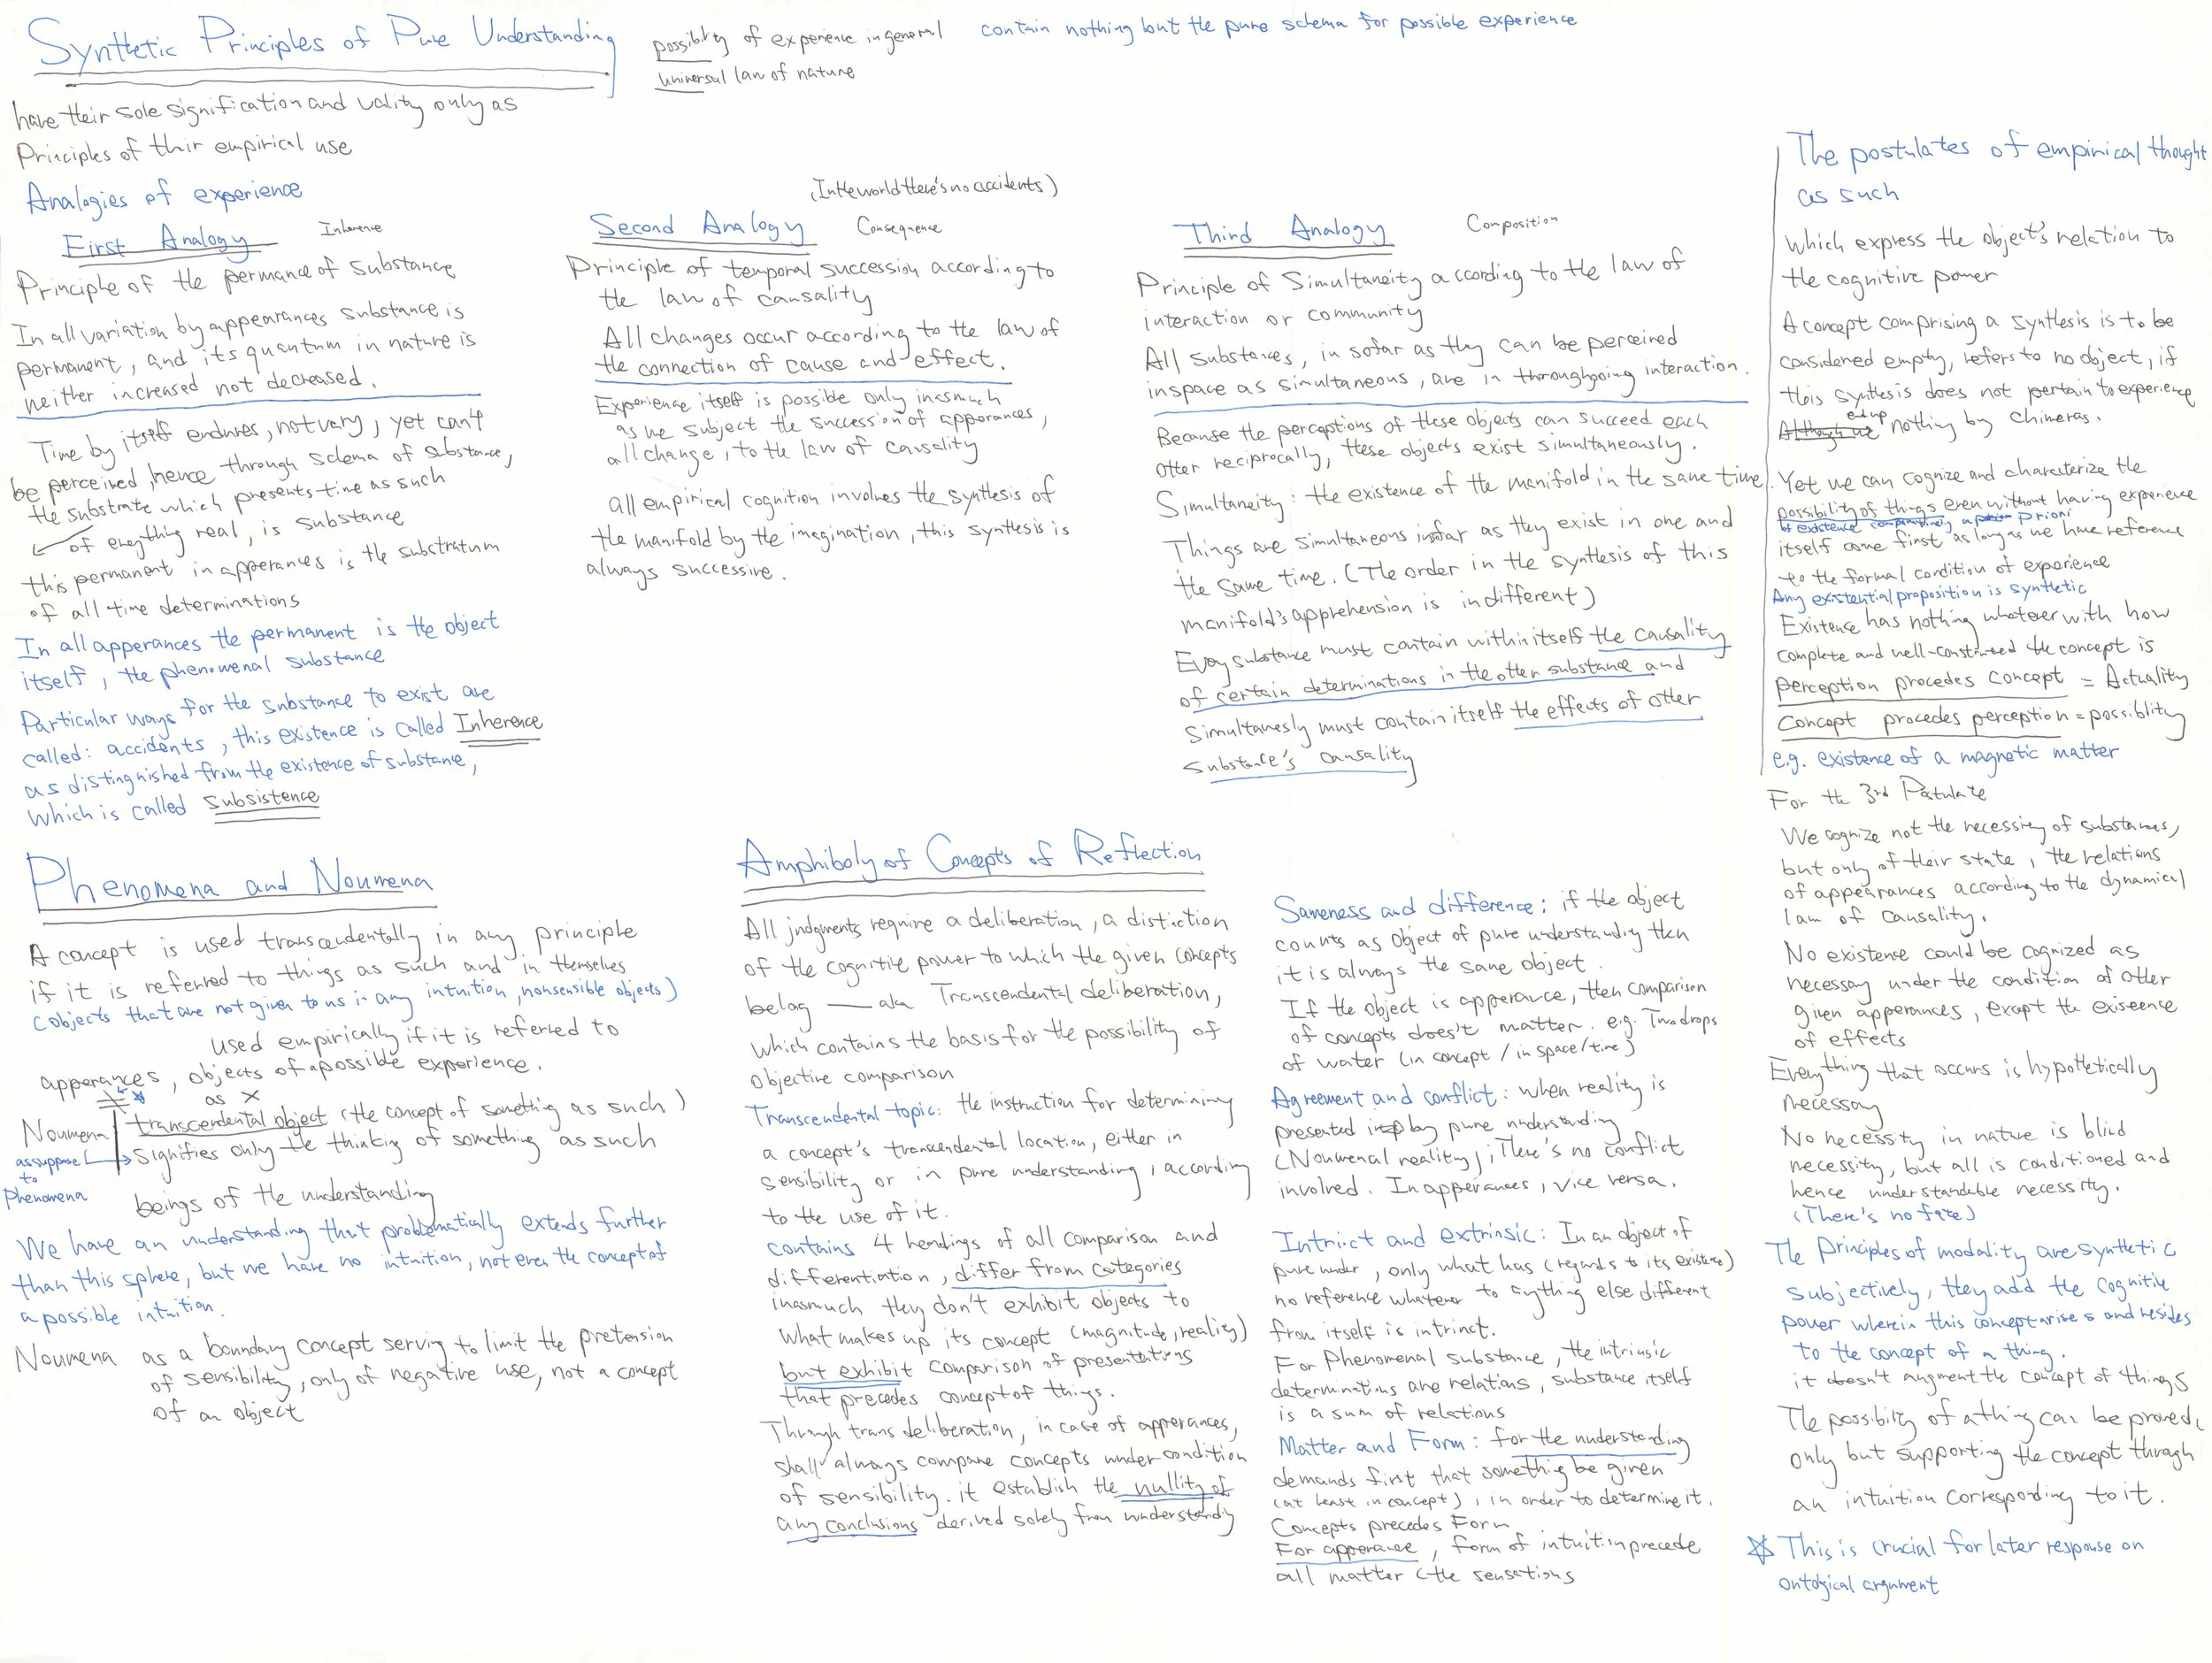 Synthetic Principles of Pure Understanding
possiblity of experience in general
universal law of nature
contain nothing but the pure schema for possible experience
have their sole signification and vality only as
Principles of thir empirical use
Analogies of experience
First Analogy
Inherence
Principle of the permance of substance
In all variation by appearances substance is
permanent, and its quantum in nature is
neither increased not decreased.
Time by itself endures, not vary, yet can't
be perceived, hence through schema of substance,
the substrate which presents time as such
of everything real, is substance
this permanent in apperances is the substratum
of all time determinations
In all apperances the permanent is the object
itself, the phenomenal substance
Particular ways for the substance to exist are
called: accidents, this existence is called Inherence
as distingnished from the existence of substane,
which is called Subsistence
(In the world there's no accidents)
Second Analogy
Consequence
Principle of temporal succession according to
the law of causality
All changes occur according to the law of
the connection of cause and effect.
Experience itself is possible only inasmuch
as we subject the succession of apperances,
all change, to the law of causality
all empirical cognition involves the synthesis of
the manifold by the imagination, this synthesis is
always successive.
Third Analogy
Composition
Principle of Simultaneity according to the law of
interaction or community
All substances, in sofar as they can be perceived
in space as simultaneous, are in throughgoing interaction.
Because the perceptions of these objects can succeed each
other reciprocally, these objects exist simultaneously.
Simultaneity: the existence of the manifold in the same time.
Things are simultaneous insofar as they exist in one and
the same time. (The order in the synthesis of this
manifold's apprehension is indifferent)
Every substance must contain within itself the causality
of certain determinations in the other substance and
simultanesly must contain itself the effects of other
substance's causality
The postulates of empirical thought
as such
which express the object's relation to
the cognitive power
A concept comprising a synthesis is to be
considered empty, refers to no object, if
this synthesis does not pertain to experience
Although we end up nothing by chimeras.
Yet we can cognize and charcterize the
possibility of things even without having experience
of existence comparatively a priori
itself come first as long as we have reference
to the formal condition of experience
Any existential proposition is synthetic
Existence has nothing whatever with how
complete and well-construed the concept is
perception procedes concept = Actuality
concept procedes perception = possiblity
e.g. existence of a magnetic matter
For the 3rd Postulate
We cognize not the necessity of substances,
but only of their state, the relations
of appearances according to the dynamical
law of causality.
No existence could be cognized as
necessary under the condition of other
given apperances, except the existence
of effects
Everything that occurs is hypothetically
necessary
No necessity in nature is blind
necessity, but all is conditioned and
hence understandable necessity.
(There's no fate)
The Principles of modality are synthetic
subjectively, they add the cognitive
power wherein this concept arises and resides
to the concept of a thing.
it doesn't augment the concept of things
The possibility of a thing can be proved
only but supporting the concept through
an intuition corresponding to it.
☆ This is crucial for later response on
ontolgical argument
Phenomena and Noumena
A concept is used transcendentally in any principle
if it is referred to things as such and in themselves
(objects that are not given to us in any intuition, nonsensible objects)
used empirically if it is referred to
apperances, objects of a possible experience.
as X
Noumena
transcendental object (the concept of something as such)
signifies only the thinking of something as such
as suppose
to
Phenomena
beings of the understanding
We have an understanding that problematically extends further
than this sphere, but we have no intuition, not even the concept of
a possible intuition.
Noumena as a boundary concept serving to limit the pretension
of sensibility, only of negative use, not a concept
of an object
Amphiboly of Concepts of Reflection
All judgments require a deliberation, a distiction
of the cognitive power to which the given concepts
belog — aka Transcendental deliberation,
which contains the basis for the possibility of
objective comparison
Transcendental topic: the instruction for determining
a concept's transcendental location, either in
sensibility or in pure understanding, according
to the use of it.
contains 4 headings of all comparison and
differentiation, differ from categories
inasmuch they don't exhibit objects to
what makes up its concept (magnitude, reality)
but exhibit comparison of presentations
that precedes concept of things.
Through trans deliberation, in case of apperances,
shall always compare concepts under condition
of sensibility. it establish the nullity of
any conclusions derived solely from understandy
Sameness and difference: if the object
counts as object of pure understandiy then
it is always the same object.
If the object is apperance, then comparison
of concepts does't matter. e.g. Two drops
of water (in concept / in space/time)
Agreement and conflict: when reality is
presented by pure understanding
(Noumenal reality), There's no conflict
involved. In apperances, vice versa.
Intrict and extrinsic: In an object of
pure under, only what has (regards to its existence)
no reference whatever to anything else different
from itself is intrinct.
For Phenomenal substance, the intrinsic
determinations are relations, substance itself
is a sum of relations
Matter and Form: for the understanding
demands first that something be given
(at least in concept), in order to determine it.
Concepts precedes Form
For apperance, form of intuition precede
all matter (the sensations